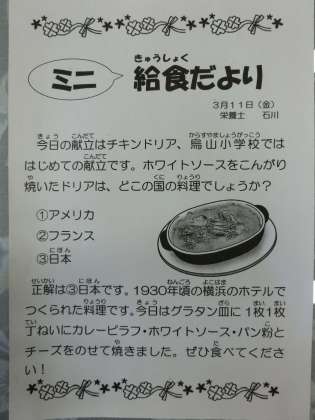 ミニ 給食だより
3月11日（金）
栄養士 石川
今日の献立はチキンドリア、烏山小学校では
はじめての献立です。ホワイトソースをこんがり
焼いたドリアは、どこの国の料理でしょうか？
①アメリカ
②フランス
③日本
正解は③日本です。1930年頃の横浜のホテルで
つくられた料理です。今日はグラタン皿に1枚1枚
丁ねいにカレーピラフ・ホワイトソース・パン粉と
チーズをのせて焼きました。ぜひ食べてくださ
い！